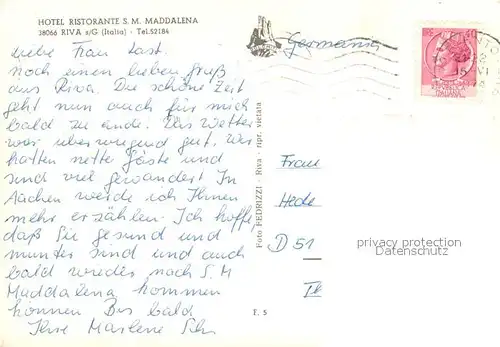 HOTEL RISTORANTE S. M. MADDALENA
38066 RIVA s/G (Italia) - Tel. 52184
Liebe Frau Last.
noch einen lieben gruß
aus Riva. Die schöne Zeit
geht nun auch für mich
bald zu ende. Das Wetter
war überwiegend gut. Wir
hatten nette Gäste und
sind viel gewandert In
Aachen werde ich Ihnen
mehr erzählen. Ich hoffe,
daß Sie gesund und
munter sind und auch
bald wieder nach S. M
Maddalena kommen
können Bis bald
Ihre Marlene
Foto FEDRIZZI - Riva - ripr. vietata
F. 5
Germania
40
Frau
Hede
D 51
privacy protection
Datenschutz